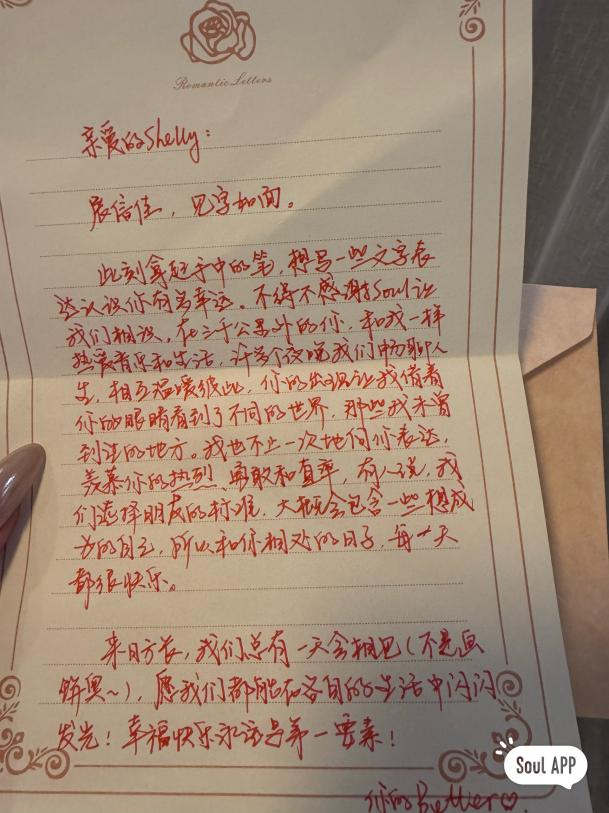 Romantic Letters
亲爱的Shelly：
展信佳，见字如面。
此刻拿起手中的笔，想写一些文字表
达认识你有多幸运。不得不感谢Soul让
我们相识，在三千公里外的你，和我一样
热爱音乐和生活，许多个夜晚我们畅聊人
生，相互温暖彼此，你的出现让我借着
你的眼睛看到了不同的世界，那些我未曾
到达的地方。我也不止一次地向你表达，
羡慕你的热烈、勇敢和直率，有人说，我
们选择朋友的标准，大概会包含一些想成
为的自己，所以和你相处的日子，每一天
都很快乐。
来日方长，我们总有一天会相见（不是画
饼奥~），愿我们都能在各自的生活中闪闪
发光！幸福快乐永远是第一要素！
你的Better
Soul APP